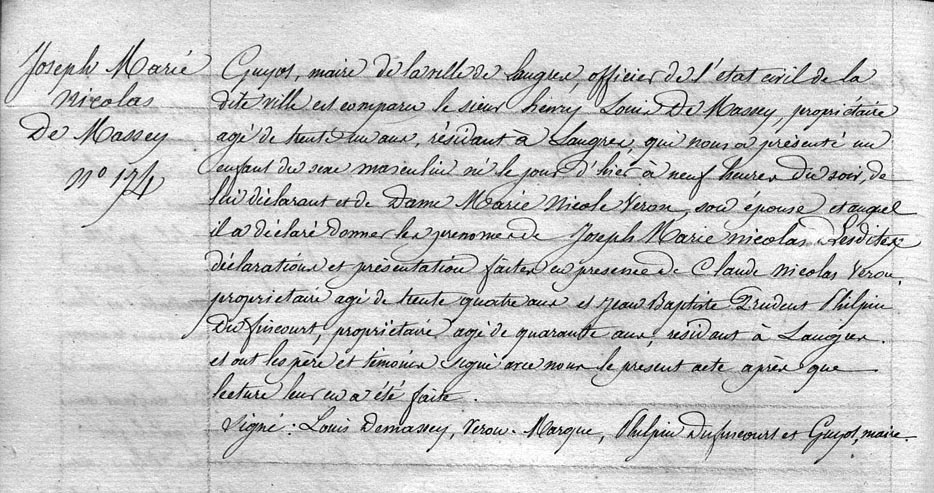 Joseph Marie
Nicolas
De Massey
N° 174
Guyot, maire de la ville de Langres, officier de l'état civil de la
dite ville est comparu le sieur henry Louis De Massey, propriétaire
agé de trente un ans, résidant à Langres, qui nous a présenté un
enfant du sexe masculin né le jour d'hier à neuf heures du soir, de
lui déclarant et de Dame Marie Nicole Veron, son épouse et auquel
il a déclaré donner les prenoms de Joseph Marie Nicolas. Lesdites
déclarations et présentation faites en presence de Claude Nicolas Veron,
propriétaire agé de trente quatre ans et Jean Baptiste Prudent Philpin
Dufiscourt, propriétaire agé de quarante ans, résidant à Langres.
et ont les père et témoins signé avec nous le present acte après que
lecture leur en a été faite.
Signé: Louis Demassey, Veron-Marque, Philpin Dufiscourt et Guyot, maire.